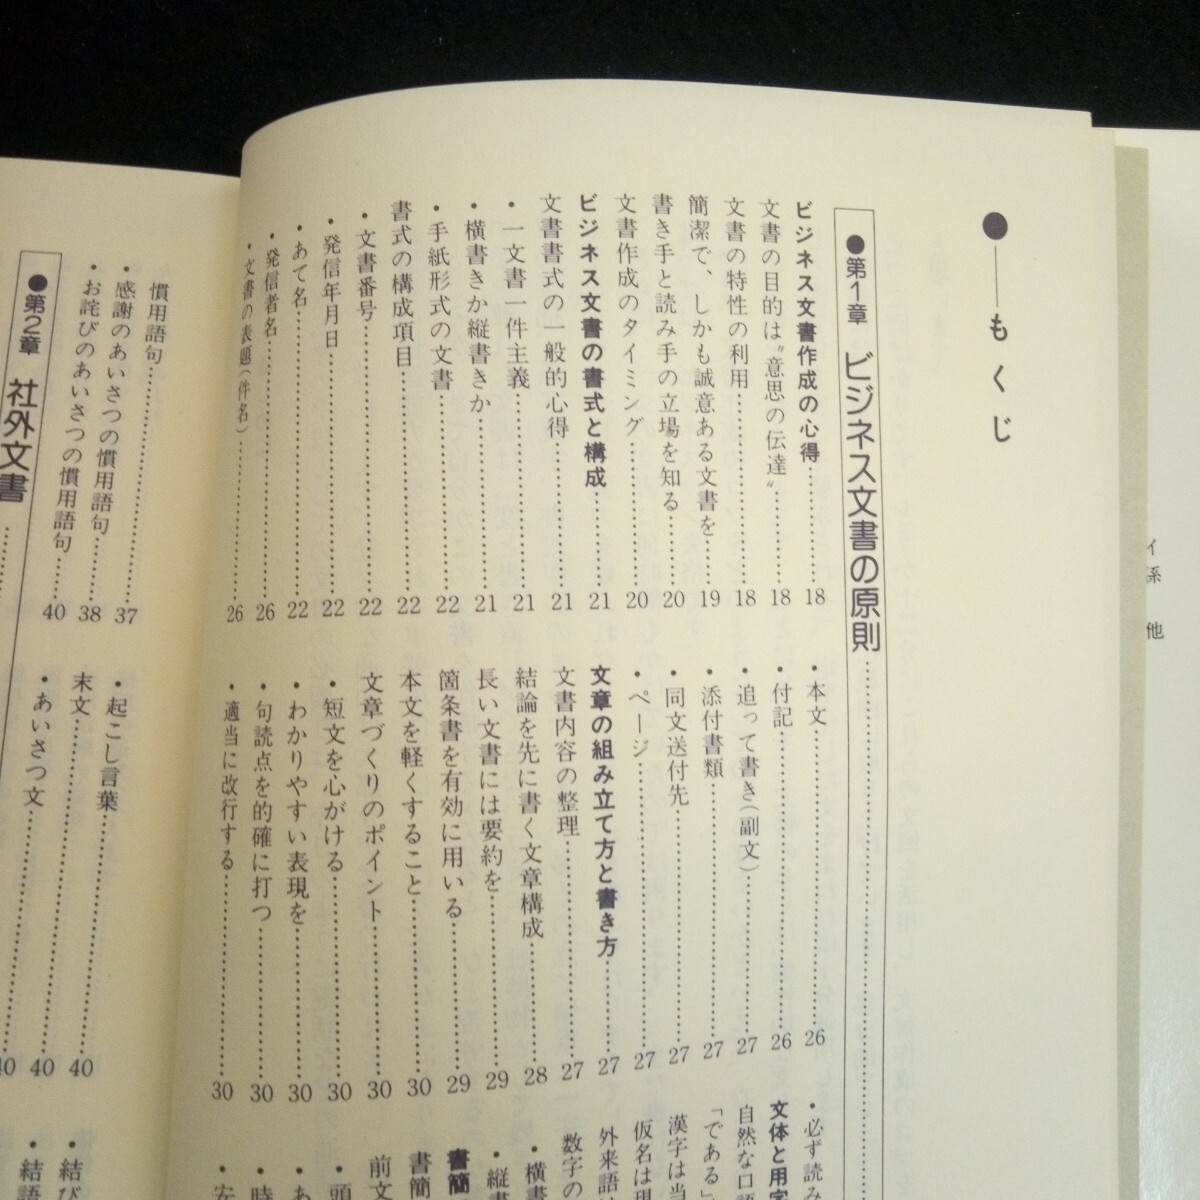 ●――もくじ
●第1章 ビジネス文書の原則……
ビジネス文書作成の心得……18
文書の目的は〝意思の伝達〟……18
文書の特性の利用……18
簡潔で、しかも誠意ある文書を……19
書き手と読み手の立場を知る……20
文書作成のタイミング……20
ビジネス文書の書式と構成……21
文書書式の一般的心得……21
・一文書一件主義……21
・横書きか縦書きか……21
・手紙形式の文書……22
書式の構成項目……22
・文書番号……22
・発信年月日……22
・あて名……22
・発信者名……26
・文書の表題(件名)……26
・本文……26
・付記……26
・追って書き(副文)……27
・添付書類……27
・同文送付先……27
・ページ……27
文章の組み立て方と書き方……27
文書内容の整理……27
結論を先に書く文章構成……28
長い文書には要約を……29
箇条書を有効に用いる……29
本文を軽くすること……30
文章づくりのポイント……30
・短文を心がける……30
・わかりやすい表現を……30
・句読点を的確に打つ……30
・適当に改行する……30
・必ず読み
文体と用字
自然な口語
「である」
漢字は当
仮名は現
外来語は
数字の
・横書
・縦書
書簡
書簡
前文
・頭
・あ
・時
・安
慣用語句……37
・感謝のあいさつの慣用語句……38
・お詫びのあいさつの慣用語句……40
●第2章 社外文書……
・起こし言葉……40
末文……40
・あいさつ文……40
・結び
・結語
イ
係
他